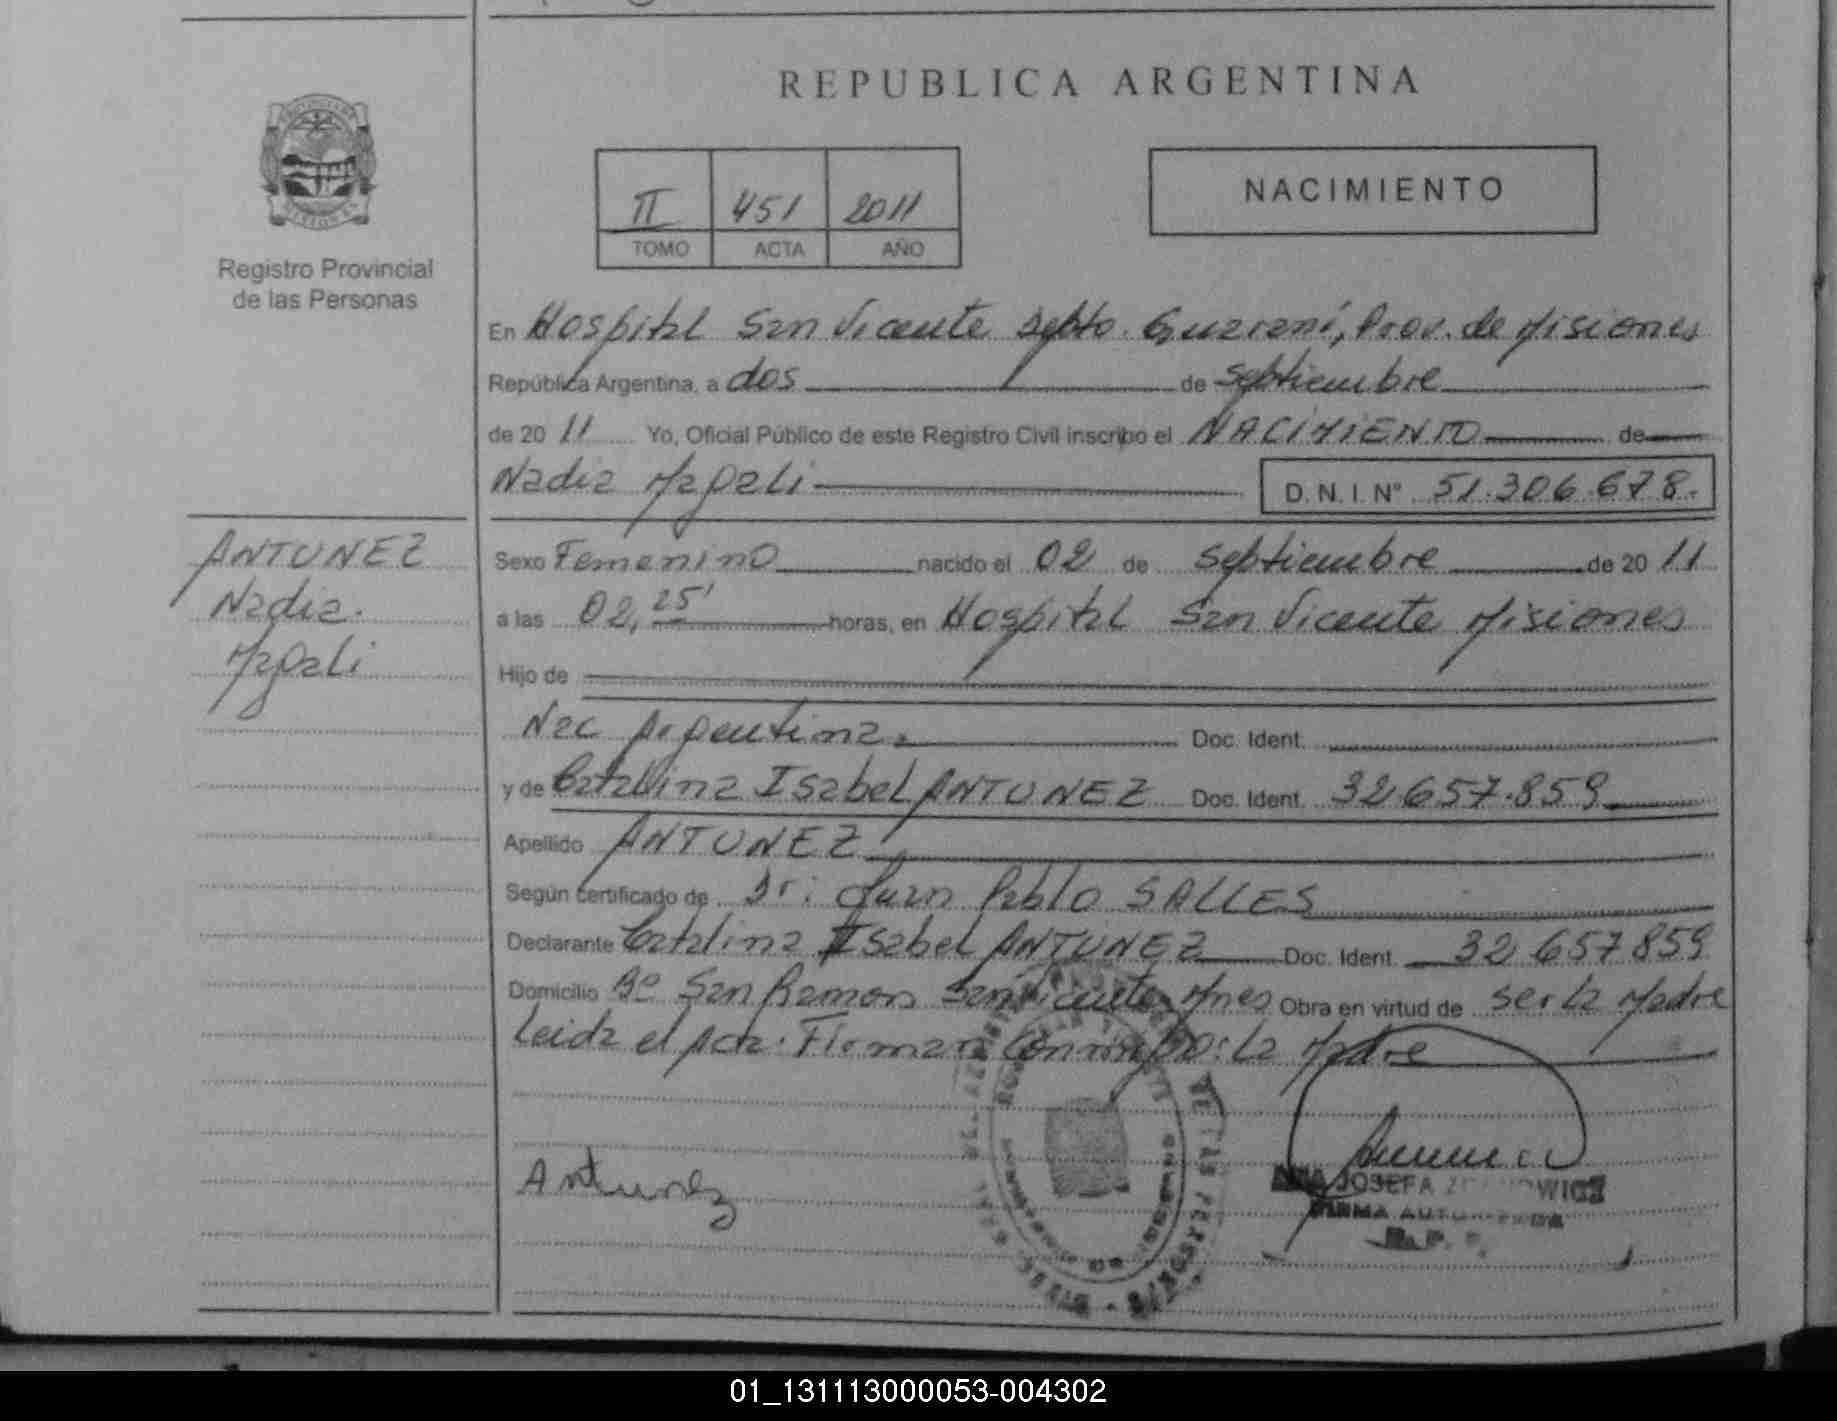 REPUBLICA ARGENTINA
II 451 2011
TOMO ACTA AÑO
NACIMIENTO
Registro Provincial
de las Personas
En Hospital San Vicente Depto. Guarani, Prov. de Misiones
República Argentina, a dos de Septiembre
de 20 11 Yo, Oficial Público de este Registro Civil inscribo el NACIMIENTO de
Nadia Magali D. N. I. N° 51.306.678.
ANTUNEZ
Nadia.
Magali
Sexo Femenino nacido el 02 de Septiembre de 20 11
a las 02, 25' horas, en Hospital San Vicente Misiones
Hijo de
Nac Argentina. Doc. Ident.
y de Catalina Isabel ANTUNEZ Doc. Ident. 32.657.859
Apellido ANTUNEZ
Según certificado de Dr: Juan Pablo SALLES
Declarante Catalina Isabel ANTUNEZ Doc. Ident. 32 657 859
Domicilio Bº San Ramon San Vicente Mnes Obra en virtud de ser la Madre
Leida el Acta. Firman Conmigo: La Madre
Antunez
JOSEFA
FIRMA
01_131113000053-004302